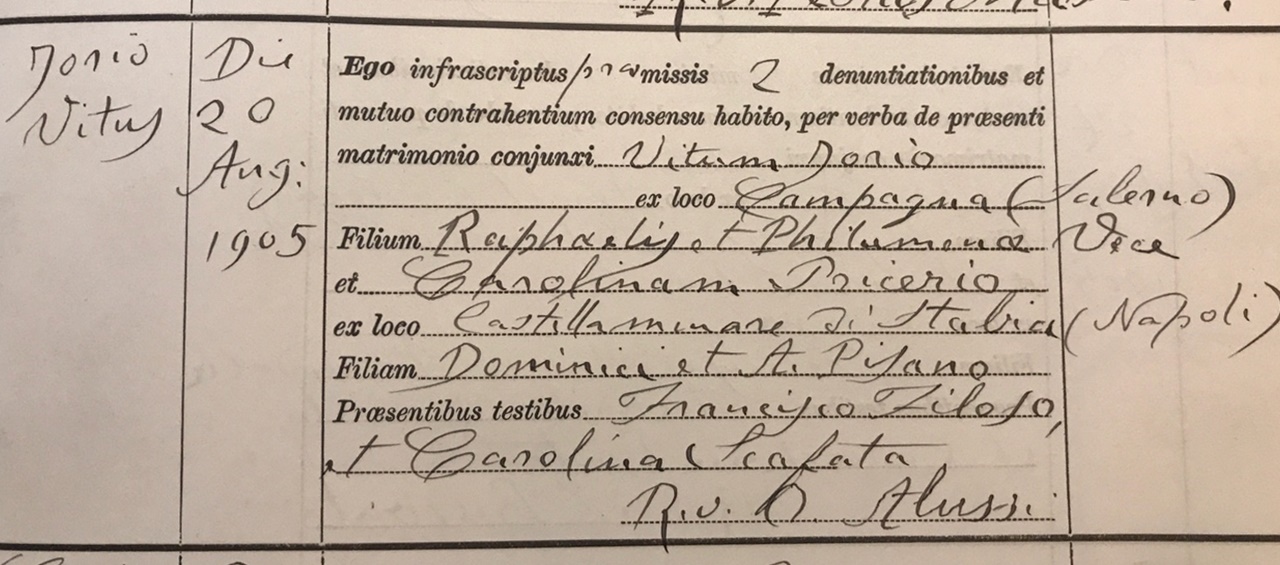 Iorio
Vitus
Die
20
Aug:
1905
Ego infrascriptus præmissis 2 denuntiationibus et
mutuo contrahentium consensu habito, per verba de præsenti
matrimonio conjunxi Vitum Iorio
ex loco Campagna (Salerno)
Filium Raphaelis et Philumenæ Vece
et Carolinam Pricerio
ex loco Castellammare di Stabia (Napoli)
Filiam Dominici et A. Pisano
Præsentibus testibus Francisco Filoso,
et Carolina Scafata
R.v. D. Alussi